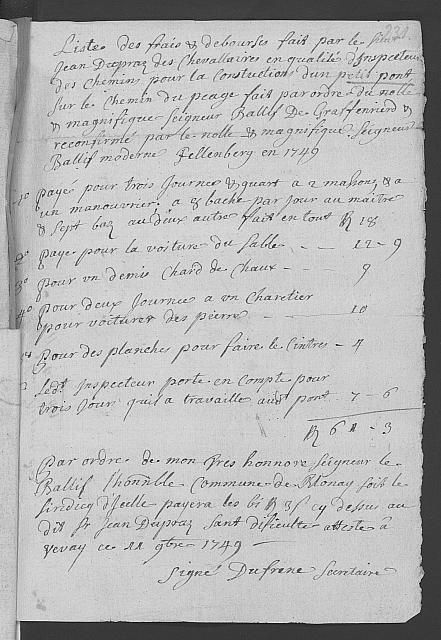 Liste des frais & debourses fait par le Sieur
Jean Dupraz des Chevallaires en qualité d'Inspecteur
des Chemins pour la Constuction dun petit pont
sur le Chemin du peage fait par ordre du noble
& magnifique Seigneur Ballif De Graffenried &
reconfirmé par le noble & magnifique Seigneur
Ballif moderne Fellenberg en 1749
1o paye pour trois Journee & quart a 2 masons, & a
un manouvrier, a 8 bache par Jour au maitre
& Sept baz au deux autre fait en tout 18
2o Paye pour la voiture du Sable - - - 12 - 9
3o Pour vn demis Chard de Chaux - - 9
4o Pour deux Journee a vn Charetier
pour voiturer des pierre - - 10
Pour des planches pour faire le Cintres - 4
Ledt Inspecteur porte en Compte pour
trois Jour quil a travaille audt pont 7 - 6
61 - 3
Par ordre de mon Tres honnore Seigneur le
Ballif l'honnble Commune de Blonay soit le
Sindicq d'Icelle payera les 61 3 s cy dessus au
dit Sr Jean Dupraz Sant dificulte atteste à
vevay ce 11 9bre 1749
Signé Dufrene Secretaire